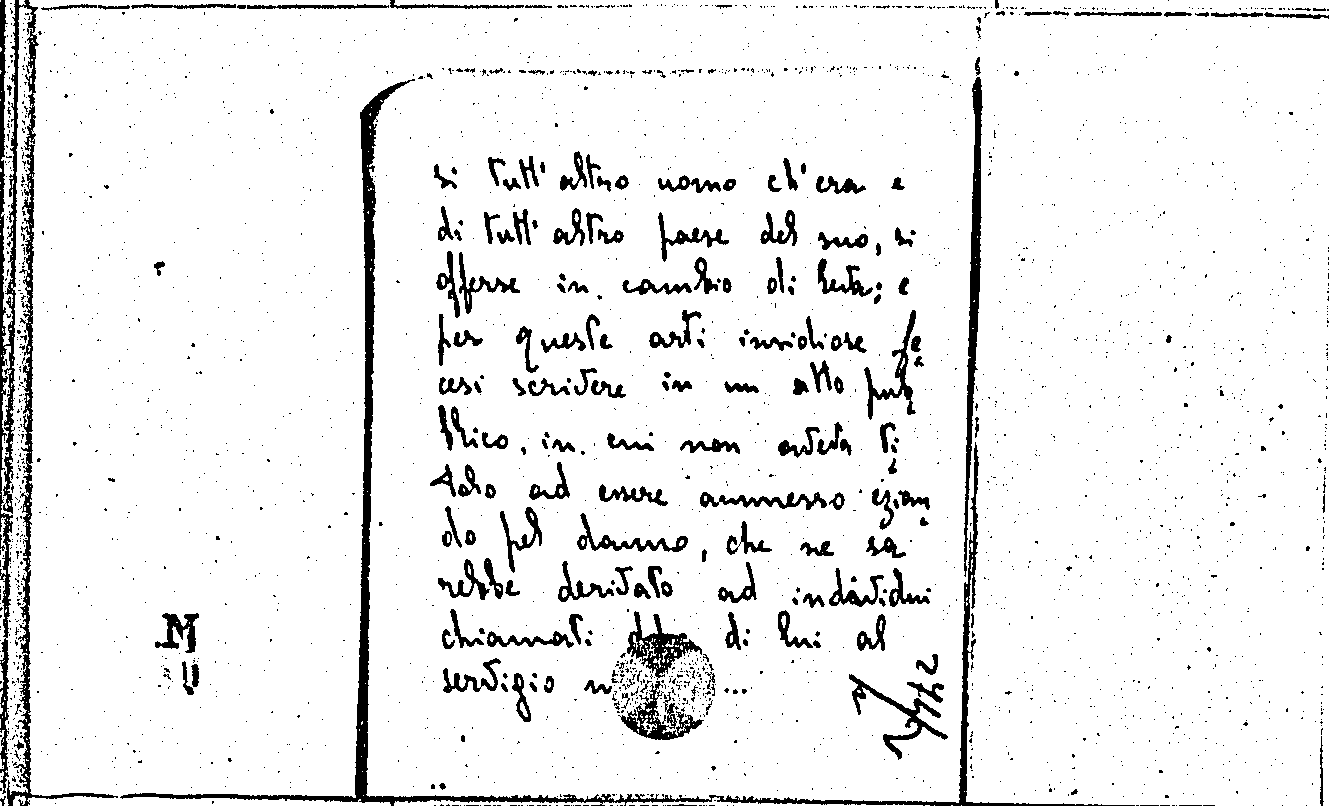 si tutt' altro uomo ch' era e
di tutt' altro paese del suo, si
offerse in cambio di leva; e
per queste arti insidiose fe
cesi scrivere in un atto pub
blico, in cui non aveva ti
tolo ad essere ammesso ezian
do pel danno, che ne sa
rebbe derivato ad individui
chiamati dopo di lui al
servigio ...
M